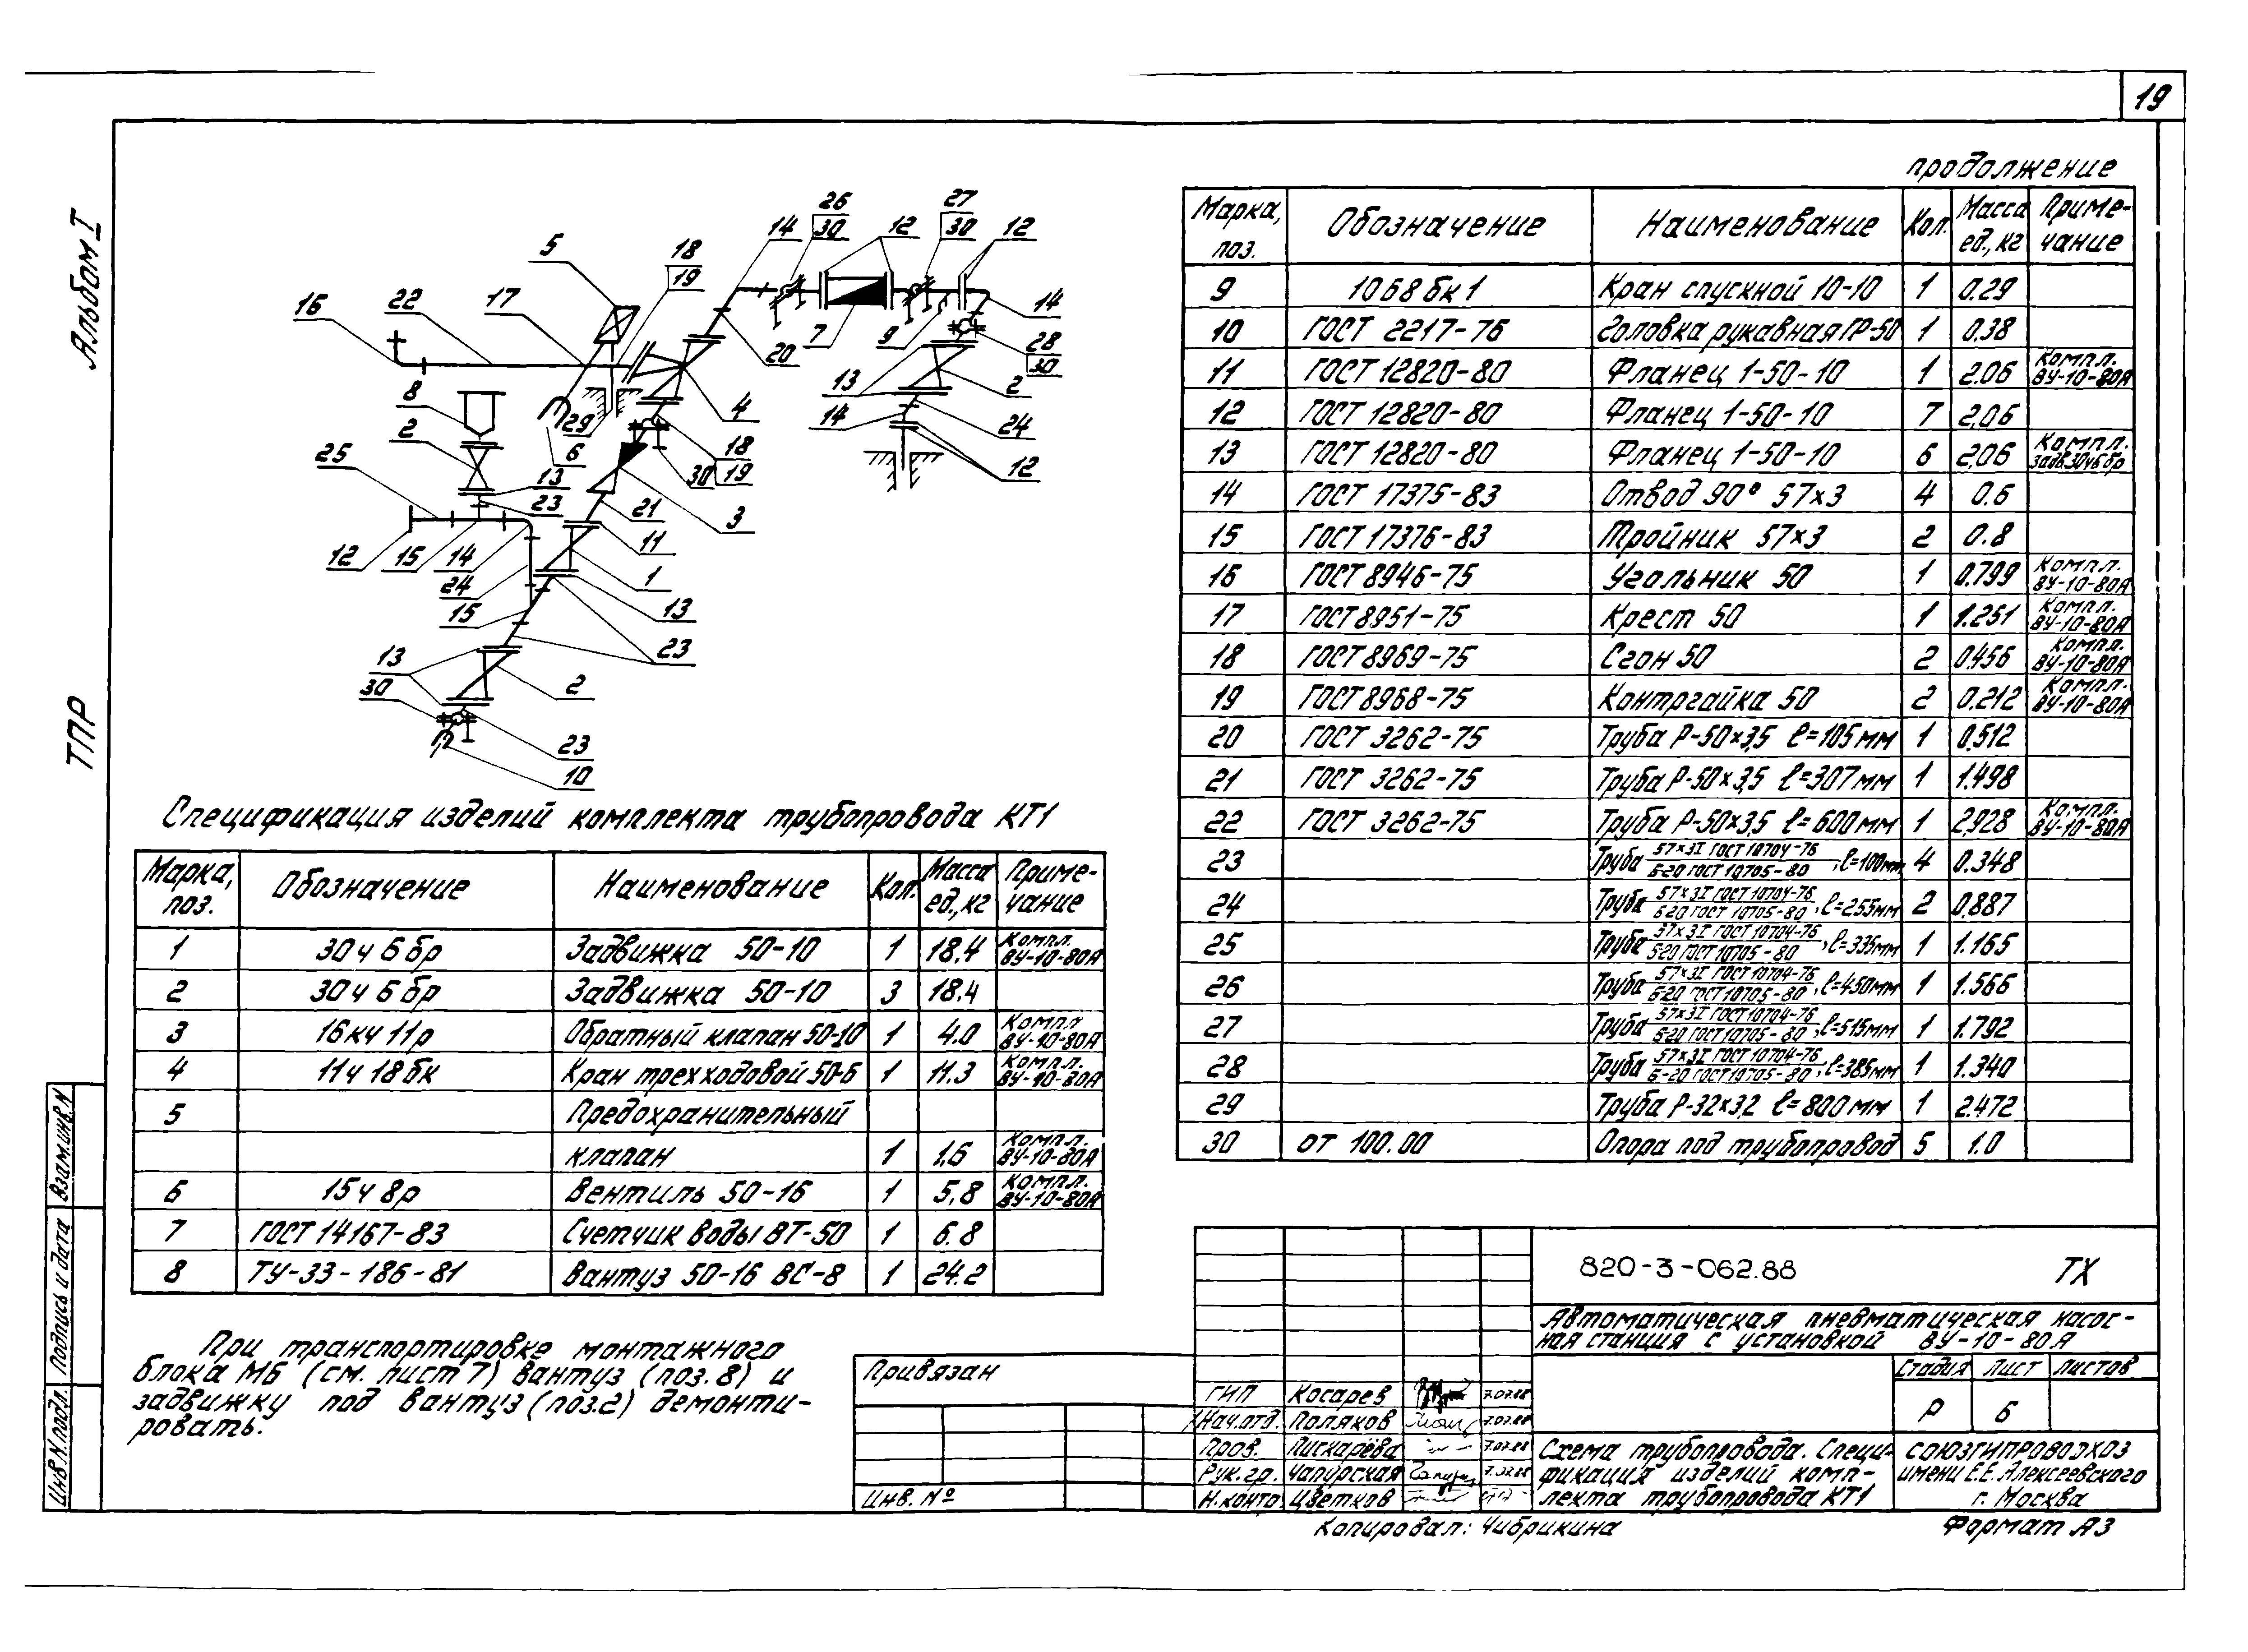 19
Альбом I
ТПР
5
18
19
14
26
30
12
27
30
12
16
22
17
7
9
14
20
28
30
8
29
6
4
13
2
14
24
12
2
25
13
23
18
19
30
21
3
12
15
14
11
24
1
15
13
13
23
30
2
23
10
Спецификация изделий комплекта трубопровода КТ1
Марка, поз. Обозначение Наименование Кол. Масса ед., кг Приме-чание
1 30ч 6 бр Задвижка 50-10 1 18.4 Компл. ВУ-10-80А
2 30ч 6 бр Задвижка 50-10 3 18.4
3 16кч 11р Обратный клапан 50-10 1 4.0 Компл ВУ-10-80А
4 11ч 18бк Кран трехходовой 50-6 1 11.3 Компл. ВУ-10-80А
5 Предохранительный
клапан 1 1.6 Компл. ВУ-10-80А
6 15ч 8р Вентиль 50-16 1 5,8 Компл. ВУ-10-80А
7 ГОСТ 14167-83 Счетчик воды ВТ-50 1 6.8
8 ТУ-33-186-81 Вантуз 50-16 ВС-8 1 24.2
При транспортировке монтажного
блока МБ (см. лист 7) вантуз (поз. 8) и
задвижку под вантуз (поз.2) демонти-
ровать.
продолжение
Марка, поз. Обозначение Наименование Кол. Масса ед., кг Приме-чание
9 10б8бк1 Кран спускной 10-10 1 0.29
10 ГОСТ 2217-76 Головка рукавная ГР-50 1 0.38
11 ГОСТ 12820-80 Фланец 1-50-10 1 2.06 Компл. ВУ-10-80А
12 ГОСТ 12820-80 Фланец 1-50-10 7 2,06
13 ГОСТ 12820-80 Фланец 1-50-10 6 2,06 Компл. задв.30ч6бр
14 ГОСТ 17375-83 Отвод 90° 57×3 4 0.6
15 ГОСТ 17376-83 Тройник 57×3 2 0.8
16 ГОСТ 8946-75 Угольник 50 1 0.799 Компл. ВУ-10-80А
17 ГОСТ 8951-75 Крест 50 1 1.251 Компл. ВУ-10-80А
18 ГОСТ 8969-75 Сгон 50 2 0.456 Компл. ВУ-10-80А
19 ГОСТ 8968-75 Контргайка 50 2 0.212 Компл. ВУ-10-80А
20 ГОСТ 3262-75 Труба Р-50×3,5 ℓ=105мм 1 0.512
21 ГОСТ 3262-75 Труба Р-50×3,5 ℓ=307мм 1 1.498
22 ГОСТ 3262-75 Труба Р-50×3,5 ℓ=600мм 1 2.928 Компл. ВУ-10-80А
23 Труба 57×3I ГОСТ 10704-76 / Б-20 ГОСТ 10705-80, ℓ=100мм 4 0.348
24 Труба 57×3I ГОСТ 10704-76 / Б-20 ГОСТ 10705-80, ℓ=255мм 2 0,887
25 Труба 57×3I ГОСТ 10704-76 / Б20 ГОСТ 10705-80, ℓ=335мм 1 1.165
26 Труба 57×3I ГОСТ 10704-76 / Б-20 ГОСТ 10705-80, ℓ=450мм 1 1.566
27 Труба 57×3I ГОСТ 10704-76 / Б-20 ГОСТ 10705-80, ℓ=515мм 1 1.792
28 Труба 57×3I ГОСТ 10704-76 / Б-20 ГОСТ 10705-80, ℓ=385мм 1 1.340
29 Труба Р-32×3,2 ℓ=800мм 1 2.472
30 от 100.00 Опора под трубопровод 5 1.0
Взам.инв.N
Подпись и дата
Инв N.подл.
Привязан
Инв. №
820-3-062.88 ТХ
Автоматическая пневматическая насос-
ная станция с установкой ВУ-10-80А
Стадия Лист Листов
Р 6
ГИП Косарев 7.07.88
Нач.отд. Поляков 7.07.88
Пров. Пискарёва 7.07.88
Рук.гр. Чапурская 7.07.88
Н.контр. Цветков
Схема трубопровода. Специ-
фикация изделий комп-
лекта трубопровода КТ1
СОЮЗГИПРОВОДХОЗ
имени Е.Е. Алексеевского
г. Москва
Копировал: Чибрикина Формат А3